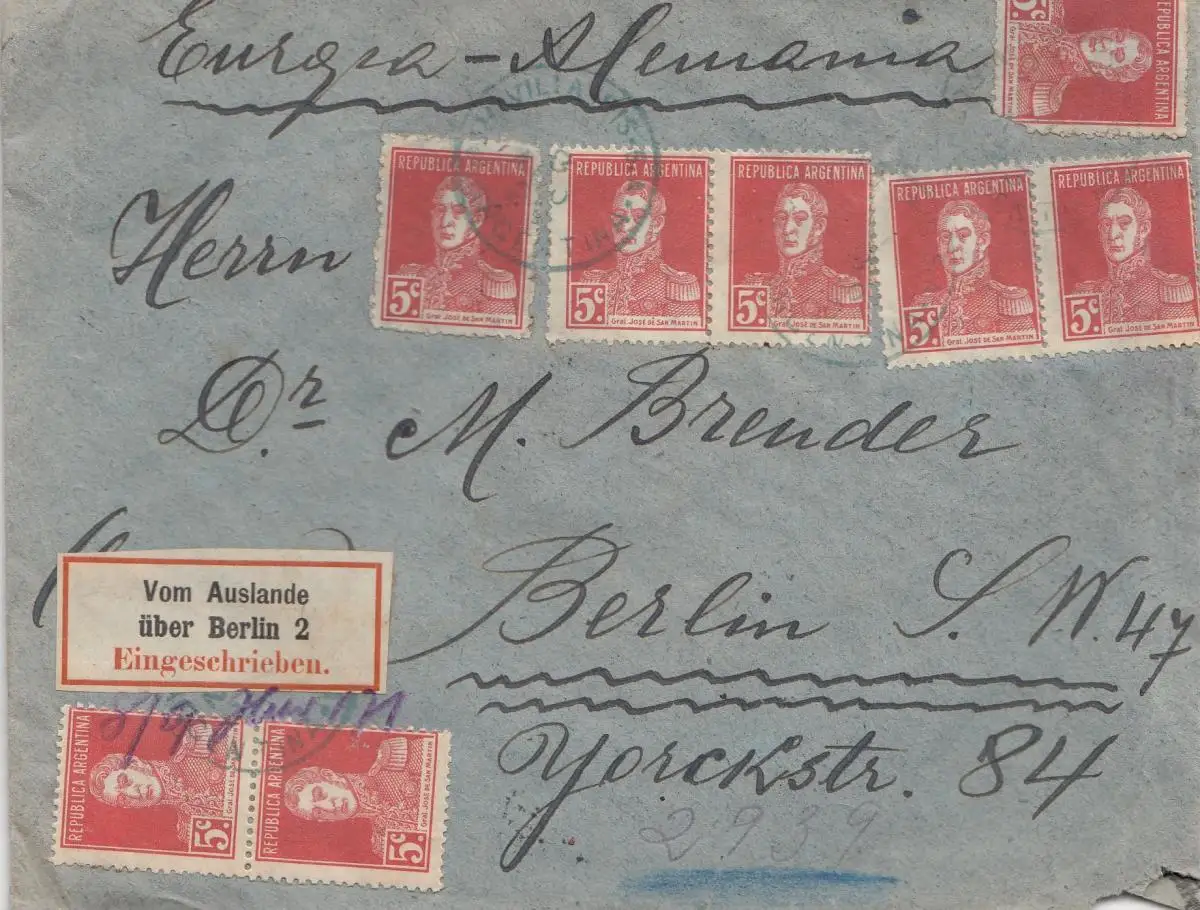 Europa - Alemania
5c
Gral. José de San Martin
REPUBLICA ARGENTINA
REPUBLICA ARGENTINA
5c.
Gral. José de San Martin
REPUBLICA ARGENTINA
5c.
Gral. José de San Martin
REPUBLICA ARGENTINA
5c.
Gral. José de San Martin
REPUBLICA ARGENTINA
5c.
Gral. José de San Martin
REPUBLICA ARGENTINA
5c.
Gral. José de San Martin
Herrn
Dr. M. Brender
Vom Auslande
über Berlin 2
Eingeschrieben.
Berlin S. W. 47
Yorckstr. 84
2939
REPUBLICA ARGENTINA
5c.
Gral. José de San Martin
REPUBLICA ARGENTINA
5c.
Gral. José de San Martin